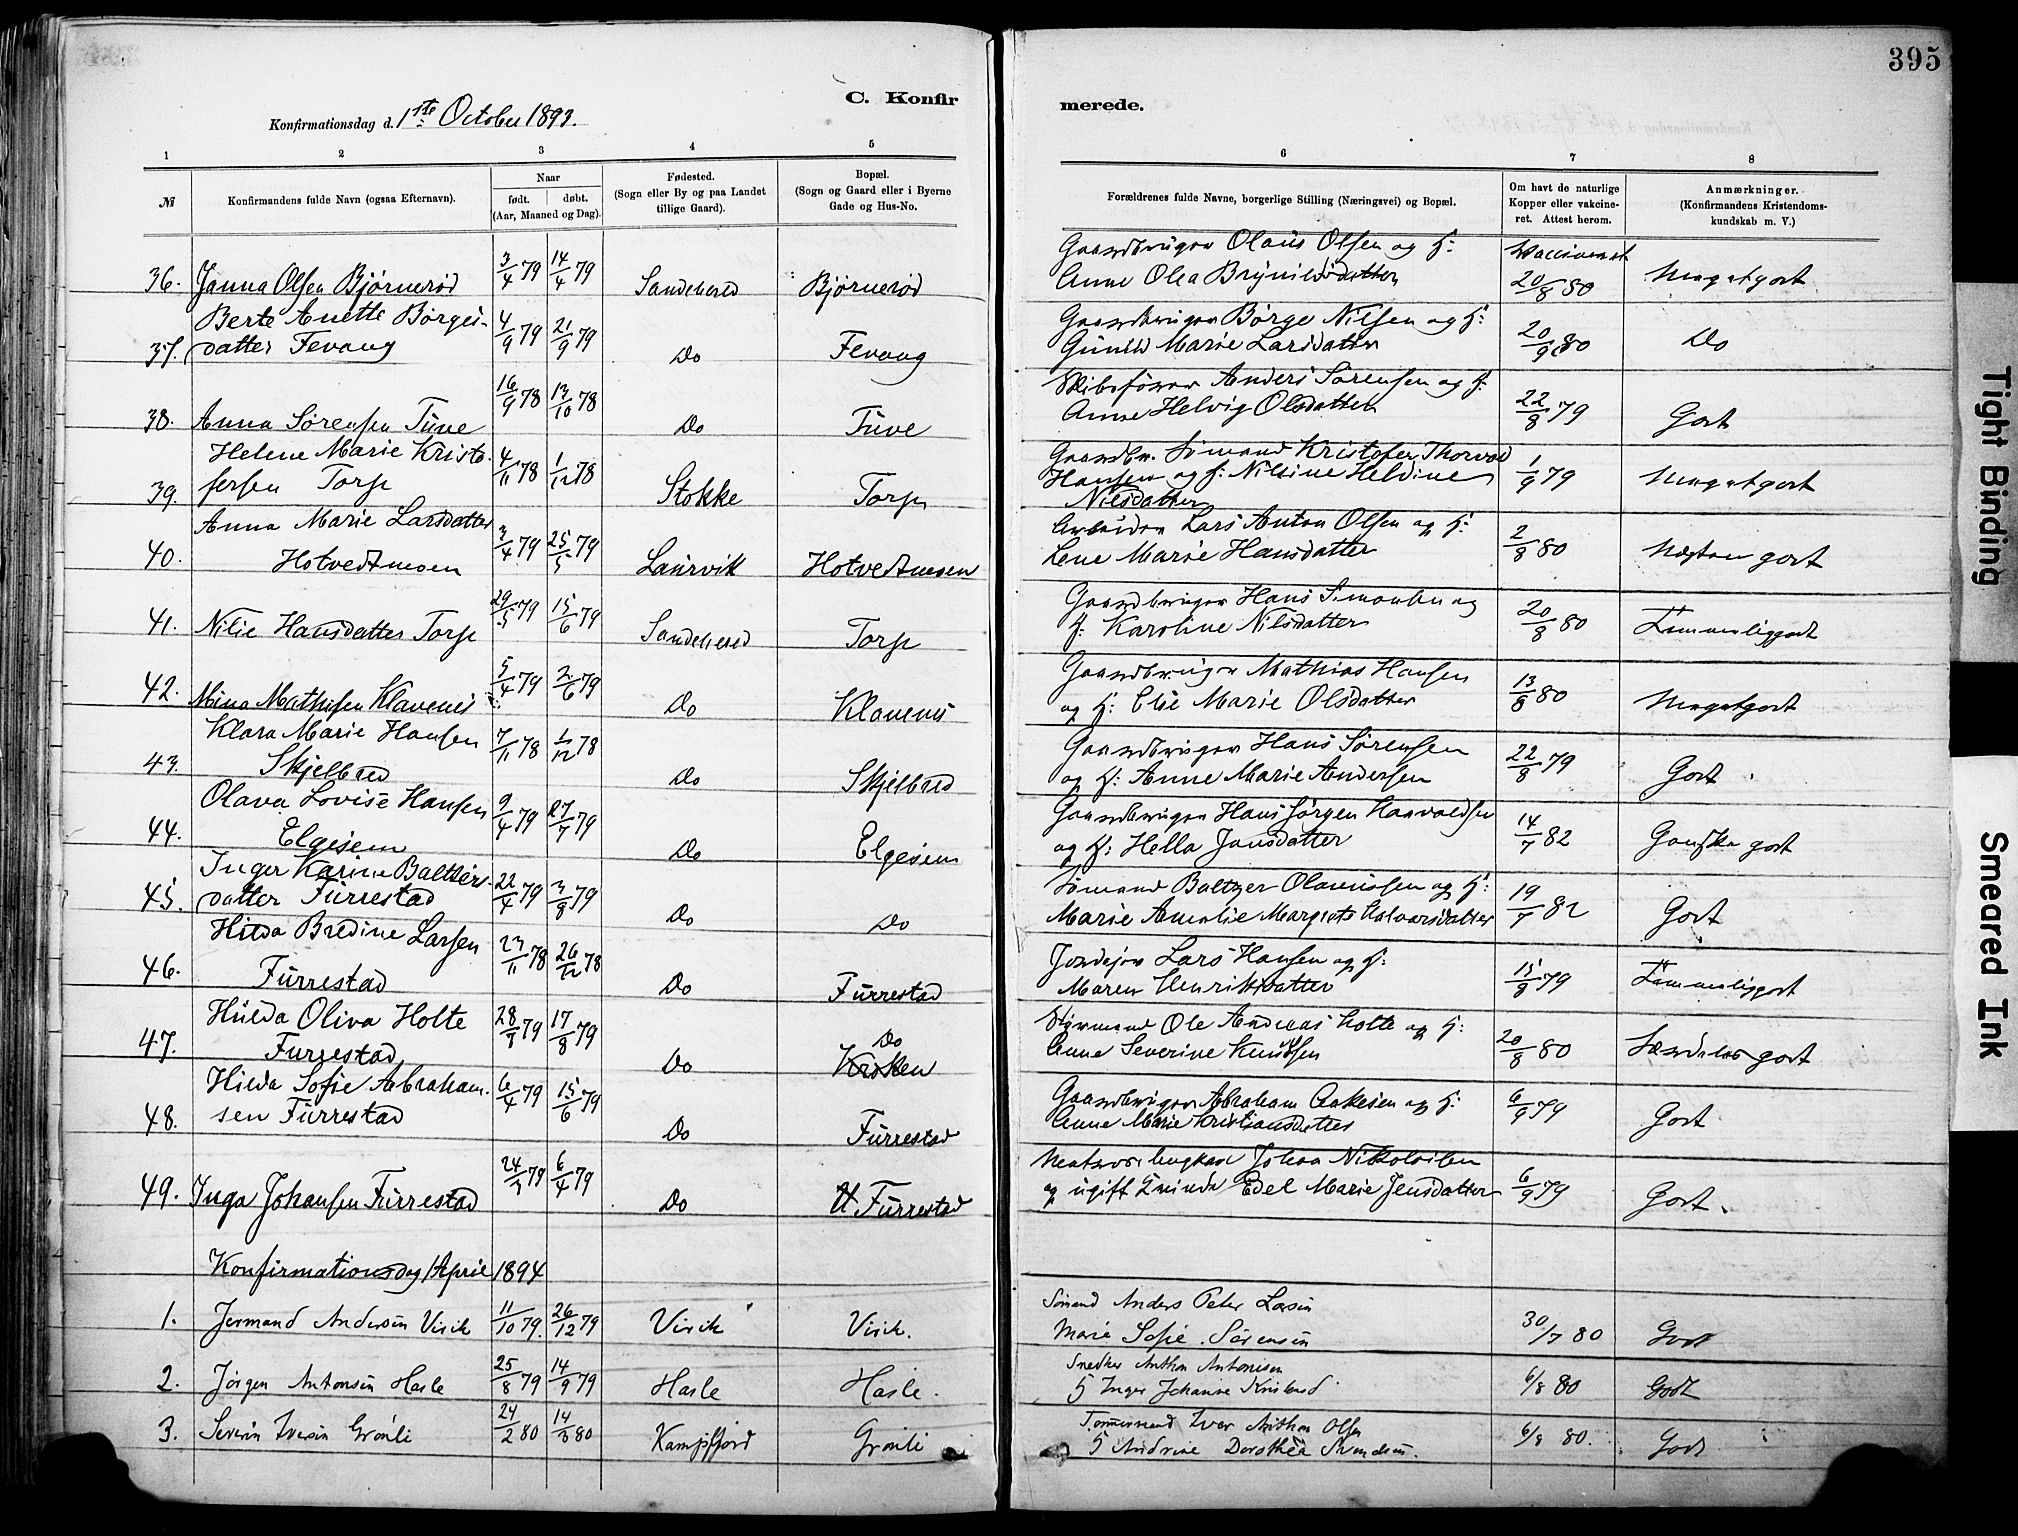 395
C. Konfir
merede.
Konfirmationsdag d. 1ste October 1893.
1 2 3 4 5 6 7 8
№
Konfirmandens fulde Navn (ogsaa Efternavn).
Naar
født. døbt.
(Aar, Maaned og Dag).
Fødested.
(Sogn eller By og paa Landet
tillige Gaard).
Bopæl.
(Sogn og Gaard eller i Byerne
Gade og Hus-No.
Forældrenes fulde Navne, borgerlige Stilling (Næringsvei) og Bopæl.
Om havt de naturlige
Kopper eller vakcine-
ret. Attest herom.
Anmærkninger.
(Konfirmandens Kristendoms-
kundskab m. V.)
Gaardbruger Olaus Olsen og H: Vaccineret
36. Janna Olsen Bjørnerød 3/4 79 14/4 79 Sandeherred Bjørnerød Anne Olea Brynildsdatter 20/8 80 Megetgodt
Berte Anette Børges- Gaardbruger Børge Nilsen og H:
37. datter Fevang 4/9 79 21/9 79 Do Fevang Gunild Marie Larsdatter 20/9 80 Do
Skibsfører Anders Sørensen og H:
38. Anna Sørensen Tuve 16/9 78 13/10 78 Do Tuve Anne Helvig Olsdatter 22/8 79 Godt
Helene Marie Kristo- Gaardbr. Sømand Kristofer Thorvald
39. fersen Torp 4/11 78 1/12 78 Stokke Torp Hansen og H: Nilsine Heldine 1/9 79 Megetgodt
Nilsdatter
Anna Marie Larsdatter Arbeider Lars Anton Olsen og H:
40. Hotvedtmoen 3/4 79 25/5 79 Laurvik Hotvedtmoen Lene Marie Hansdatter 2/8 80 Næsten godt
Gaardbruger Hans Simonsen og
41. Nilie Hansdatter Torp 29/5 79 15/6 79 Sandeherred Torp H: Karoline Nilsdatter 20/8 80 Temmeliggodt
Gaardbruger Mathias Hansen
42. Mina Mathisen Klavenes 5/4 79 2/6 79 Do Klavenes og H: Elie Marie Olsdatter 13/8 80 Megetgodt
Klara Marie Hansen Gaardbruger Hans Sørensen
43. Skjelbred 7/11 78 1/12 78 Do Skjelbred og H: Anne Marie Andersen 22/8 79 Godt
Olava Lovise Hansen Gaardbruger Hans Jørgen Haavaldsen
44. Elgesem 9/4 79 27/7 79 Do Elgesem og H: Hella Jansdatter 14/7 82 Ganske godt
Inger Karine Baltsers- Sømand Baltzer Olaussen og H:
45. datter Furrestad 22/4 79 3/8 79 Do Do Marie Amalie Margrete Halvorsdatter 19/7 82 Godt
Hilda Bredine Larsen Jordejer Lars Hansen og H:
46. Furrestad 23/11 78 26/12 78 Do Furrestad Maren Henriksdatter 15/8 79 Temmeliggodt
Hulda Oliva Holte Styrmand Ole Andreas Holte og H:
47. Furrestad 28/7 79 17/8 79 Do Do Kroken Anne Severine Knudsen 20/8 80 Særdeles godt
Hilda Sofie Abraham- Gaardbruger Abraham Aakesen og H:
48. sen Furrestad 6/4 79 15/6 79 Do Furrestad Anne Marie Kristiansdatter 6/9 79 Godt
Matros ungkarl Johan Nikolaisen
49. Inga Johansen Furrestad 24/3 79 6/4 79 Do Furrestad og ugift Kvinde Edel Marie Jensdatter 6/9 79 Godt.
Konfirmationsdag 1 April 1894
Sømand Anders Peter Larsen
1. Jermand Andersen Virik 11/10 79. 26/12 79 Virik Virik. Marie Sofie Sørensen 30/7 80 Godt
Snedker Anthon Antonisen
2. Jørgen Antonsen Hasle 25/8 79 14/9 79 Hasle Hasle. H Inger Johanne 6/8 80 Godt
Tømmermand Iver Anthon Olsen
3. Severin Iversen Grønli 24/2 80 14/3 80 Kampfjord Grønli H Andrine Dorothea 6/8 80. Godt
Tight Binding
Smeared Ink